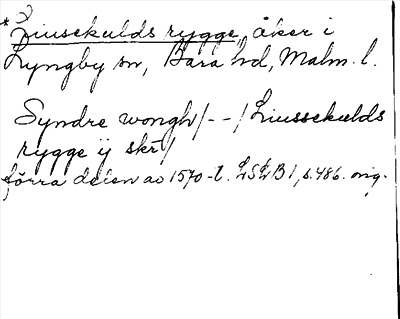 *Liusekulds rygge, åker i
Lyngby sn, Bara hd, Malm. l.
Syndre wongh/--/Liussekulds
rygge ij skr/
förra delen av 1570-t. LSLB 1, s. 486. orig.